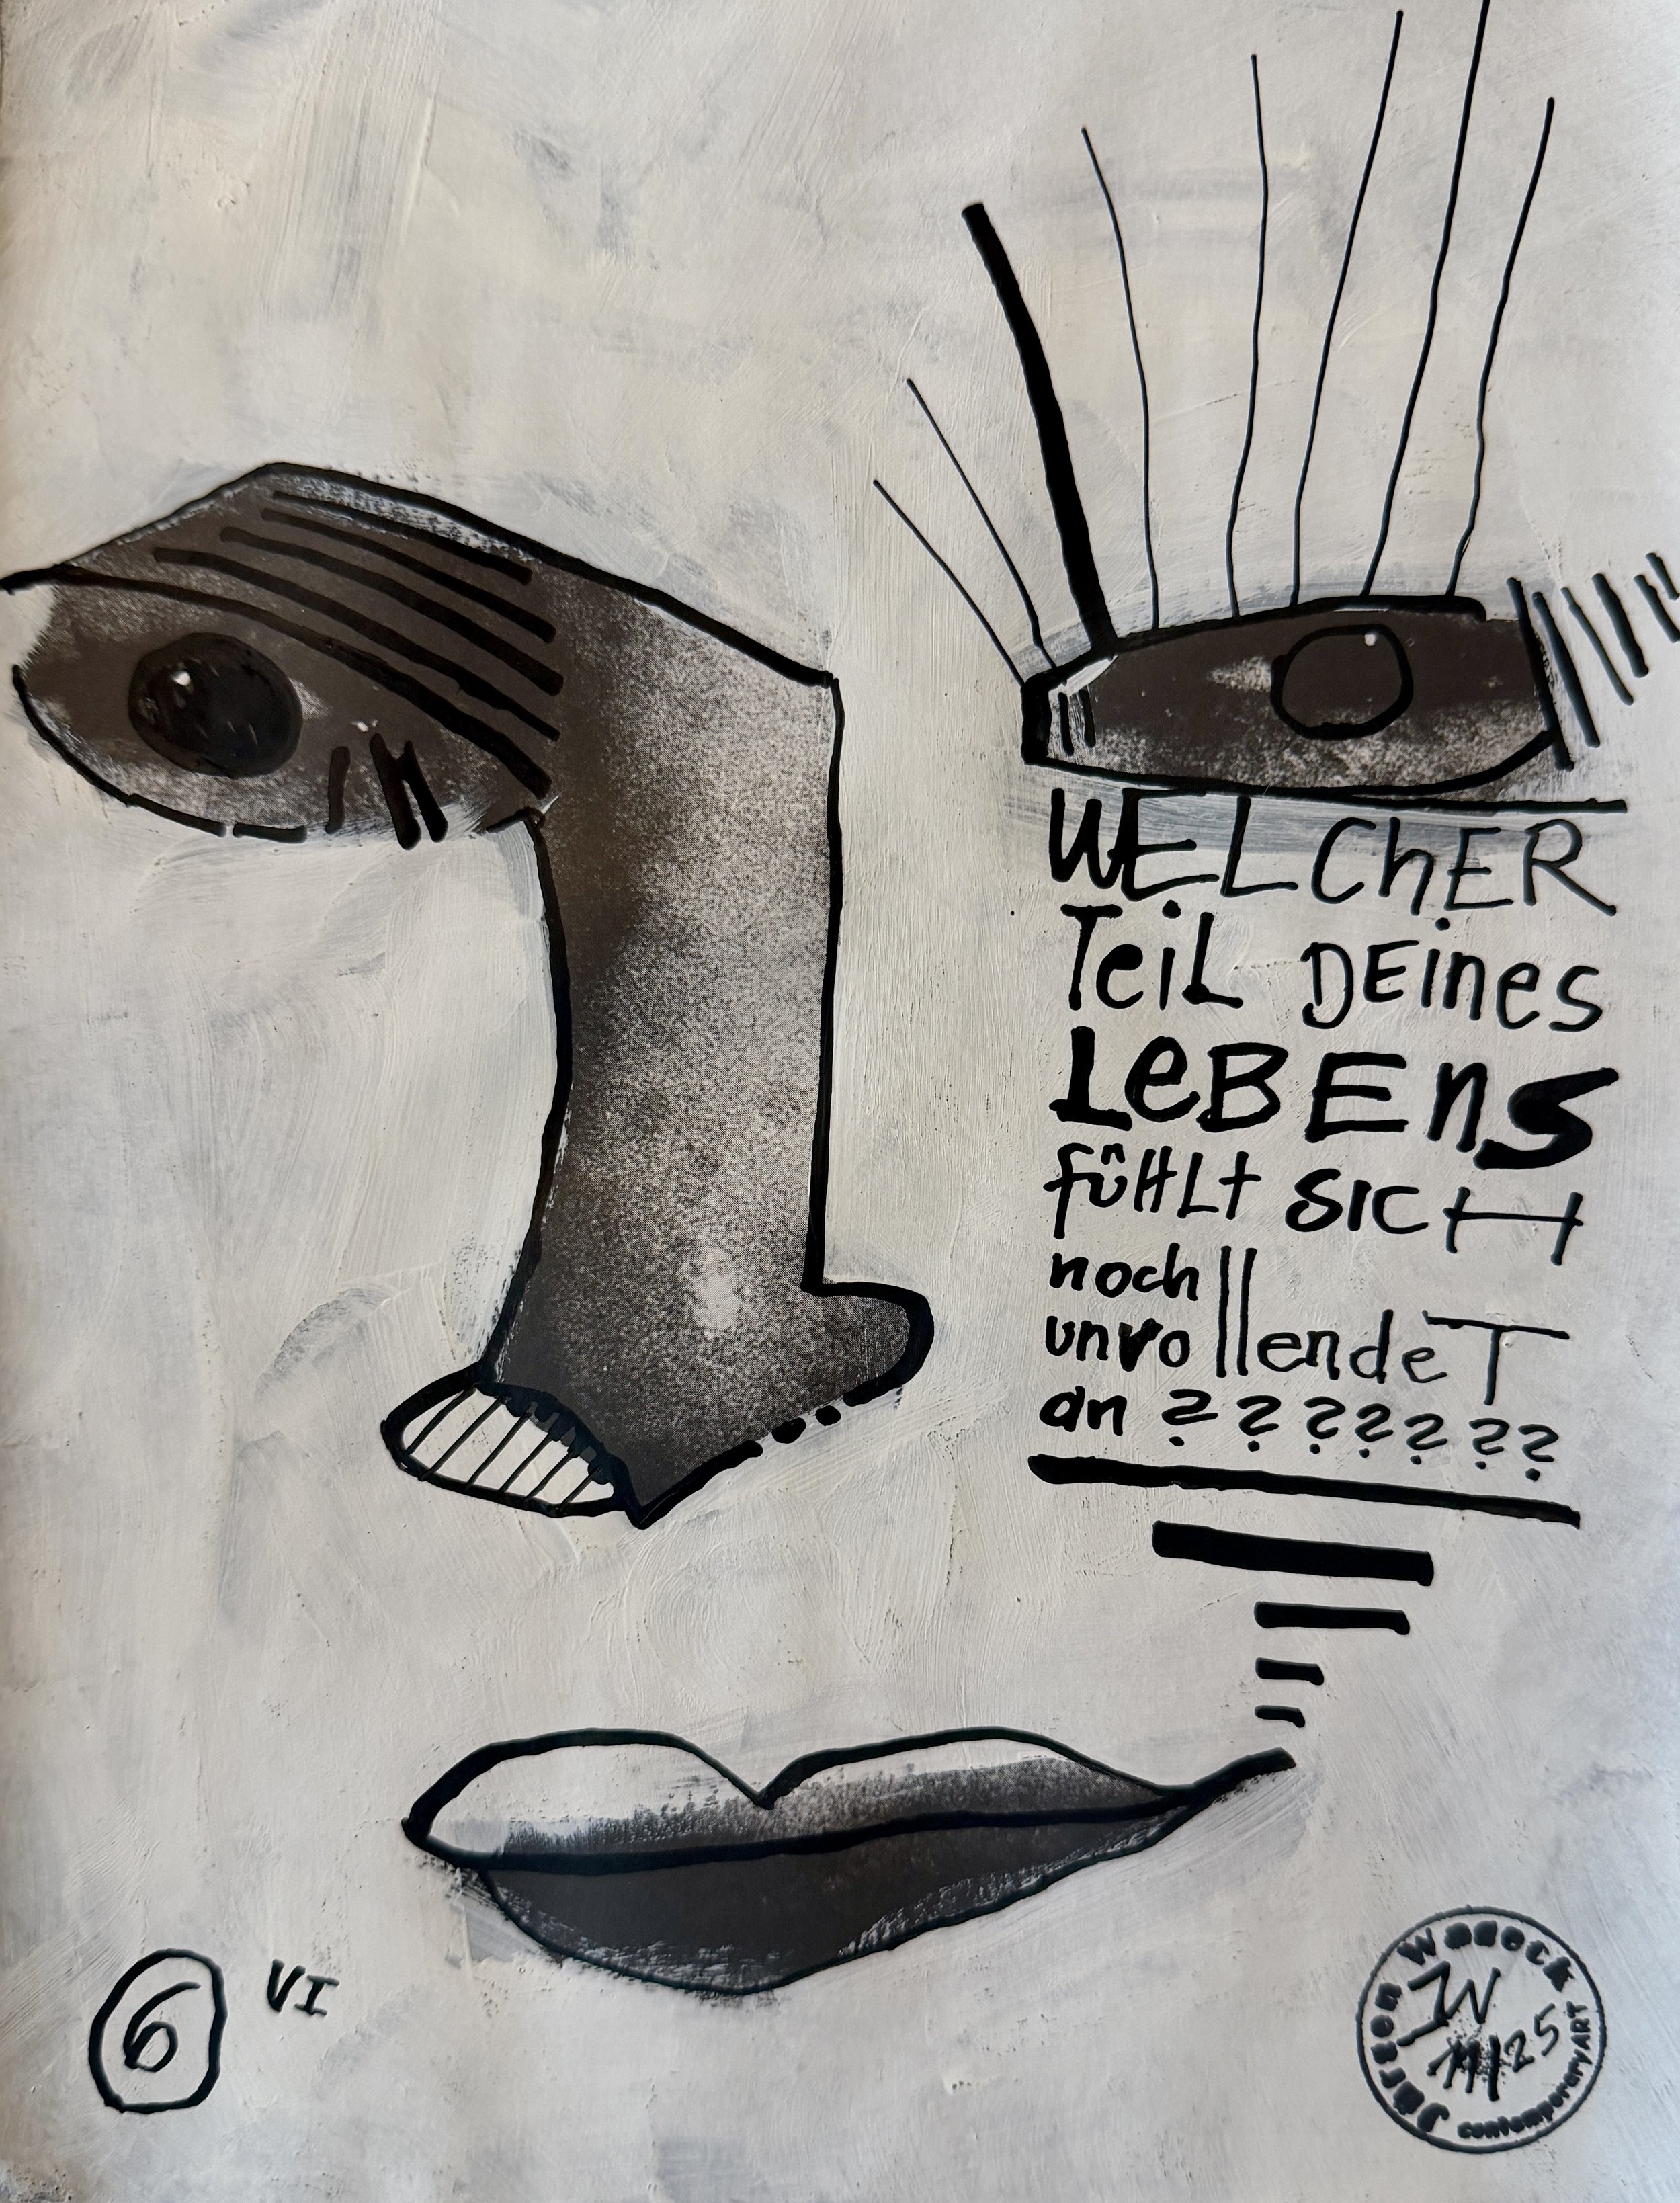 WELChER
TeiL DEines
LeBEnS
fühLt SICH
noch
unvollendeT
an ???????
6 VI
Jürgen Wadeck
JW
11/25
contemporaryART